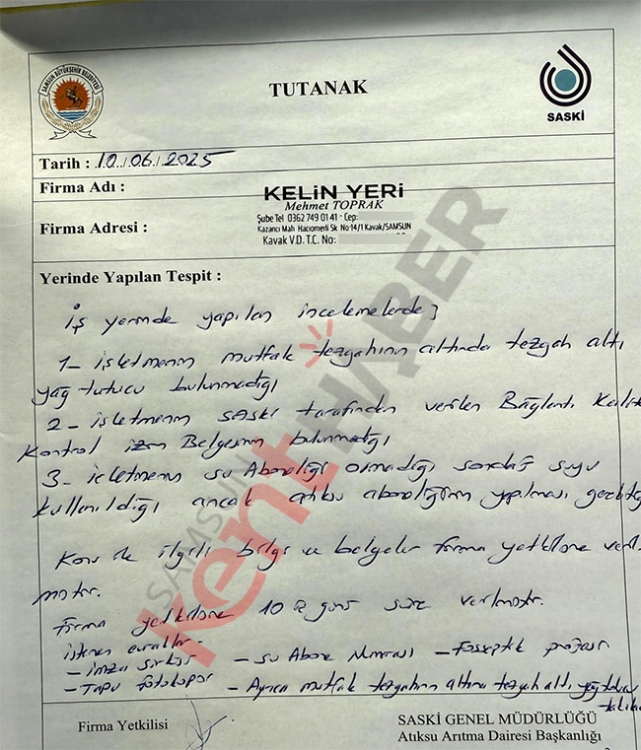 SAMSUN BÜYÜKŞEHİR BELEDİYESİ
TUTANAK
SASKİ
Tarih : 10/06/2025
Firma Adı :
KELİN YERİ
Mehmet TOPRAK
Firma Adresi :
Şube Tel 0362 749 01 41 - Cep:
Kazancı Mah Hacıömerli Sk No:14/1 Kavak/SAMSUN
Kavak V.D. T.C. No:
Yerinde Yapılan Tespit :
İş yerinde yapılan incelemelerde;
1- işletmenin mutfak tezgahının altında tezgah altı
yağ tutucu bulunmadığı
2- işletmenin SASKİ tarafından verilen Bağlantı Kalite
Kontrol izin Belgesinin bulunmadığı
3- işletmenin su Aboneliği olmadığı sondaj suyu
kullanıldığı ancak atıksu aboneliğinin yapılması gerektiği
Konu ile ilgili bilgi ve belgeler firma yetkilisine veril
miştir.
Firma yetkilisine 10 gün süre verilmiştir.
istenen evraklar
- imza sirküsü - su Abone Numarası - Foseptik projesi
- Tapu fotokopisi - Ayrıca mutfak tezgahın altına tezgah altı yağ tutucu
Firma Yetkilisi
SASKİ GENEL MÜDÜRLÜĞÜ
Atıksu Arıtma Dairesi Başkanlığı
SAMSUN kent HABER